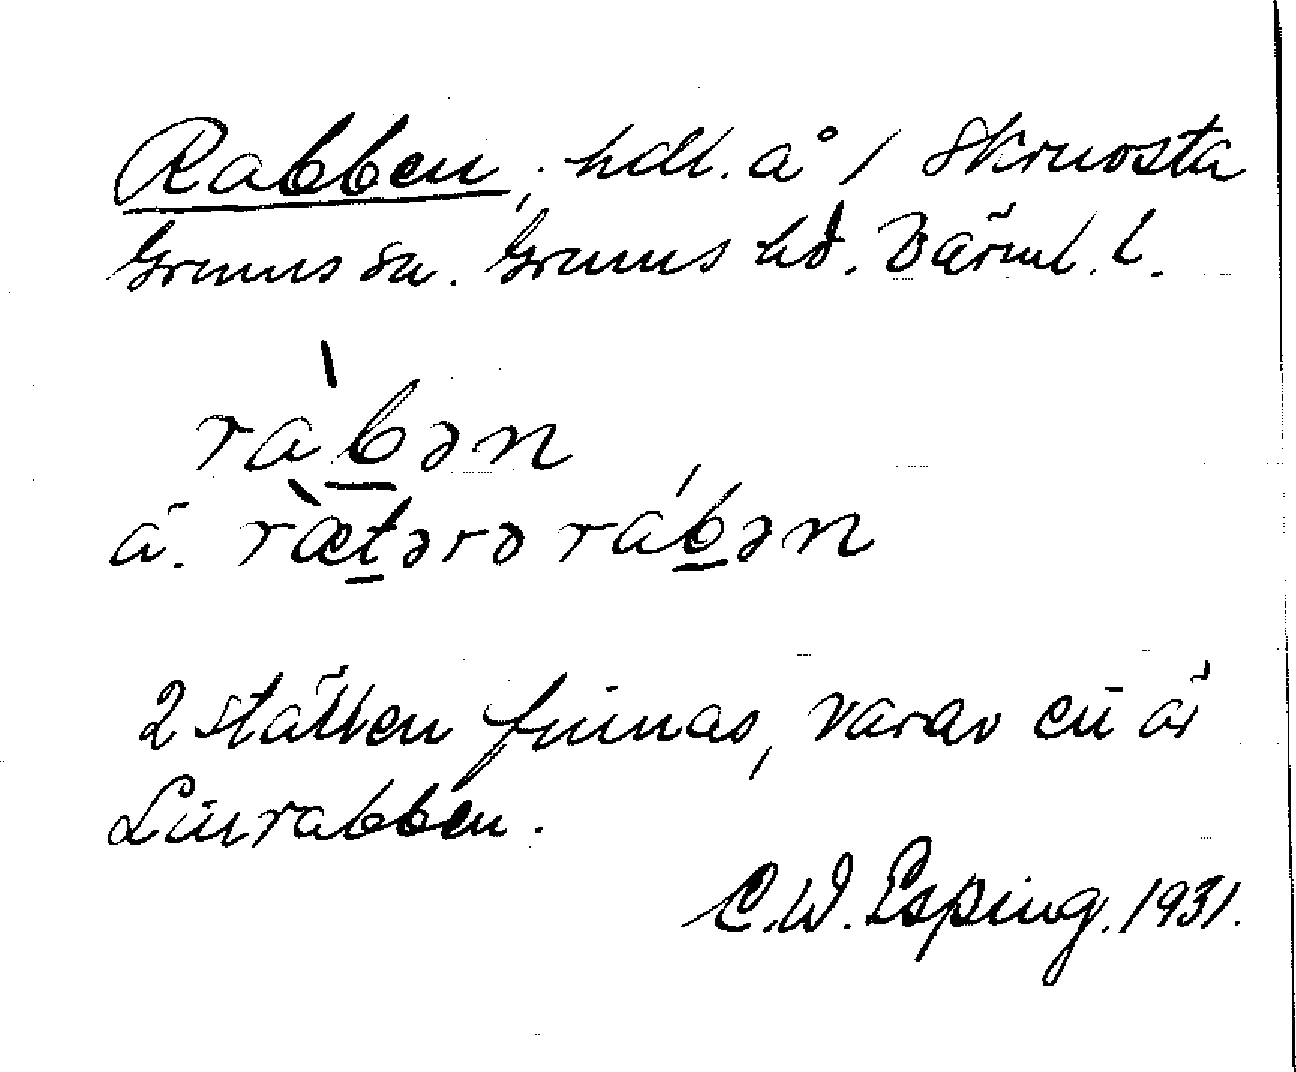 Rabben, hdl. å 1 Skruvsta
Grums sn. Grums hd. Värml. l.
ra`bən
ä. ræ`tərə ra´bən
2 ställen finnas, varav en är
Lillrabben.
C.W. Esping. 1931.